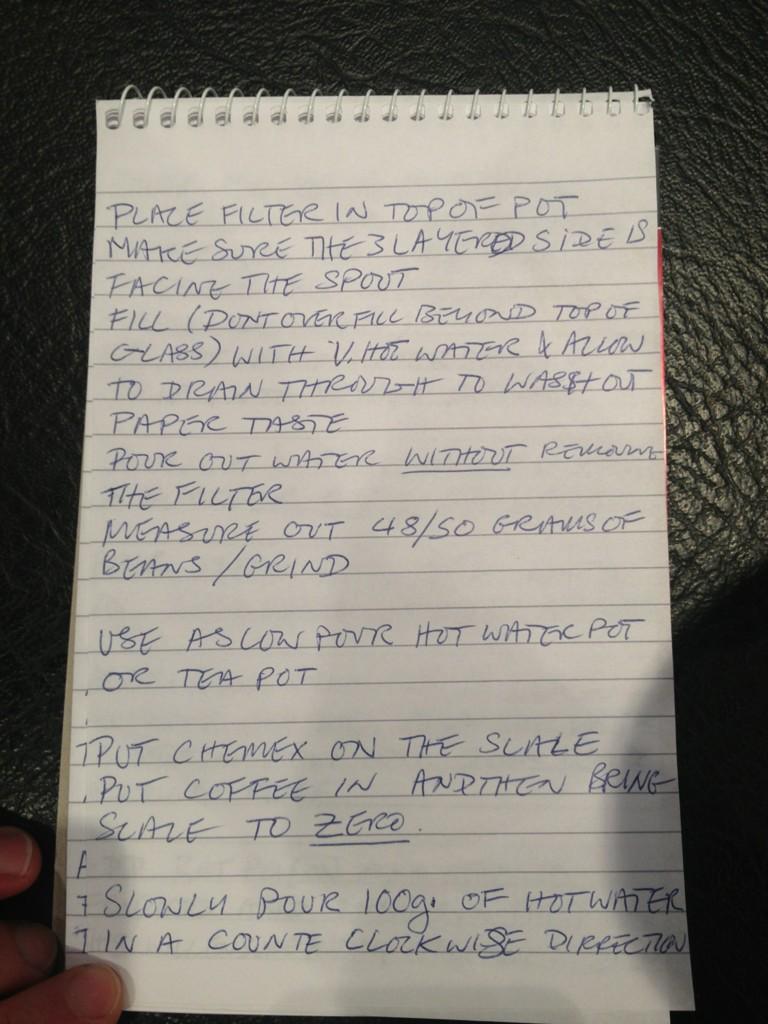 PLACE FILTER IN TOP OF POT
MAKE SURE THE 3 LAYERED SIDE IS
FACING THE SPOUT
FILL (DONT OVER FILL BEYOND TOP OF
GLASS) WITH V. HOT WATER & ALLOW
TO DRAIN THROUGH TO WASH OUT
PAPER TASTE
POUR OUT WATER WITHOUT REMOVING
THE FILTER
MEASURE OUT 48/50 GRAMS OF
BEANS / GRIND
USE A SLOW POUR HOT WATER POT
OR TEA POT
PUT CHEMEX ON THE SCALE
PUT COFFEE IN AND THEN BRING
SCALE TO ZERO.
SLOWLY POUR 100g. OF HOT WATER
IN A COUNTE CLOCKWISE DIRRECTION